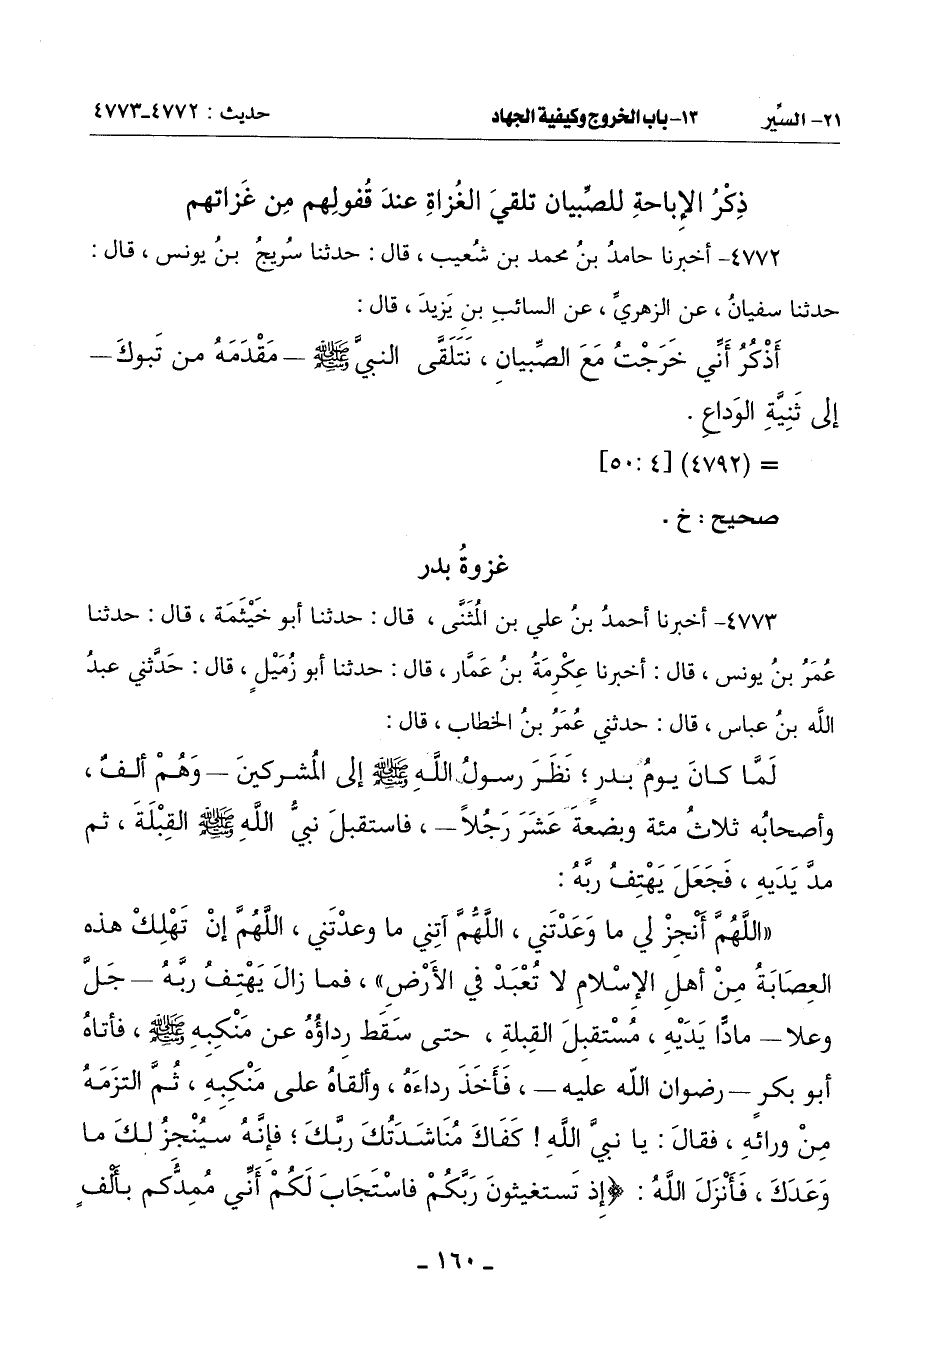 ٢١- السِّير ١٣- باب الخروج وكيفية الجهاد حديث : ٤٧٧٢-٤٧٧٣
ذِكْرُ الإباحةِ للصِّبيان تلقيَ الغُزاةِ عندَ قُفولِهم مِن غَزاتهم
٤٧٧٢- أخبرنا حامدُ بنُ محمد بن شُعيب ، قال : حدثنا سُريجُ بنُ يونس ، قال :
حدثنا سفيانُ ، عن الزهريِّ ، عن السائبِ بنِ يَزيدَ ، قال :
أَذْكُرُ أَنِّي خَرَجْتُ مَعَ الصِّبيانِ ، نَتَلَقَّى النبيَّ ﷺ – مَقْدَمَهُ من تَبوكَ –
إلى ثَنِيَّةِ الوَداعِ .
= (٤٧٩٢) [٤ : ٥٠]
صحيح : خ .
غزوةُ بدر
٤٧٧٣- أخبرنا أحمدُ بنُ علي بن المُثَنَّى ، قال : حدثنا أبو خَيْثَمَة ، قال : حدثنا
عُمَرُ بنُ يونس ، قال : أخبرنا عِكْرِمَةُ بنُ عَمَّار ، قال : حدثنا أبو زُمَيْلٍ ، قال : حَدَّثني عبدُ
اللَّه بنُ عباس ، قال : حدثني عُمَرُ بنُ الخطاب ، قال :
لَمَّا كانَ يومُ بدرٍ ؛ نَظَرَ رسولُ اللَّهِ ﷺ إلى المُشركينَ – وَهُمْ ألفٌ ،
وأصحابُه ثلاثُ مئة وبضعةَ عَشَرَ رَجُلاً – ، فاستقبلَ نبيُّ اللَّهِ ﷺ القِبْلَةَ ، ثم
مدَّ يَدَيهِ ، فَجَعَلَ يَهْتِفُ ربَّهُ :
«اللَّهُمَّ أَنْجِزْ لي ما وَعَدْتَني ، اللَّهُمَّ آتِني ما وعدْتَني ، اللَّهُمَّ إنْ تَهْلِكْ هذه
العِصَابَةُ مِنْ أهلِ الإسْلامِ لا تُعْبَدْ في الأَرْضِ» ، فما زالَ يَهْتِفُ ربَّهُ – جَلَّ
وعلا – مادًّا يَدَيْهِ ، مُسْتقبلَ القبلةِ ، حتى سَقَط رداؤُهُ عن مَنْكِبِهِ ﷺ ، فأتاهُ
أبو بكرٍ – رضوان اللَّه عليه – ، فَأَخَذَ رداءَهُ ، وألقاهُ على مَنْكِبِهِ ، ثُمَّ التزمَهُ
مِنْ ورائهِ ، فقالَ : يا نبيَّ اللَّهِ ! كَفَاكَ مُنَاشَدَتُكَ ربَّكَ ؛ فإنَّهُ سيُنْجِزُ لكَ ما
وَعَدَكَ ، فَأَنْزَلَ اللَّهُ : ﴿إذ تَستغيثونَ رَبَّكُمْ فاسْتَجابَ لَكُمْ أنِّي مُمِدُّكم بأَلْفٍ
- ١٦٠ -